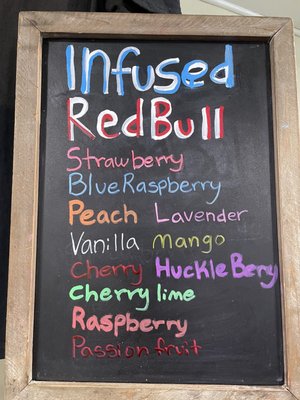 Infused
RedBull
Strawberry
BlueRaspberry
Peach Lavender
Vanilla Mango
Cherry HuckleBerry
Cherry lime
Raspberry
Passion fruit